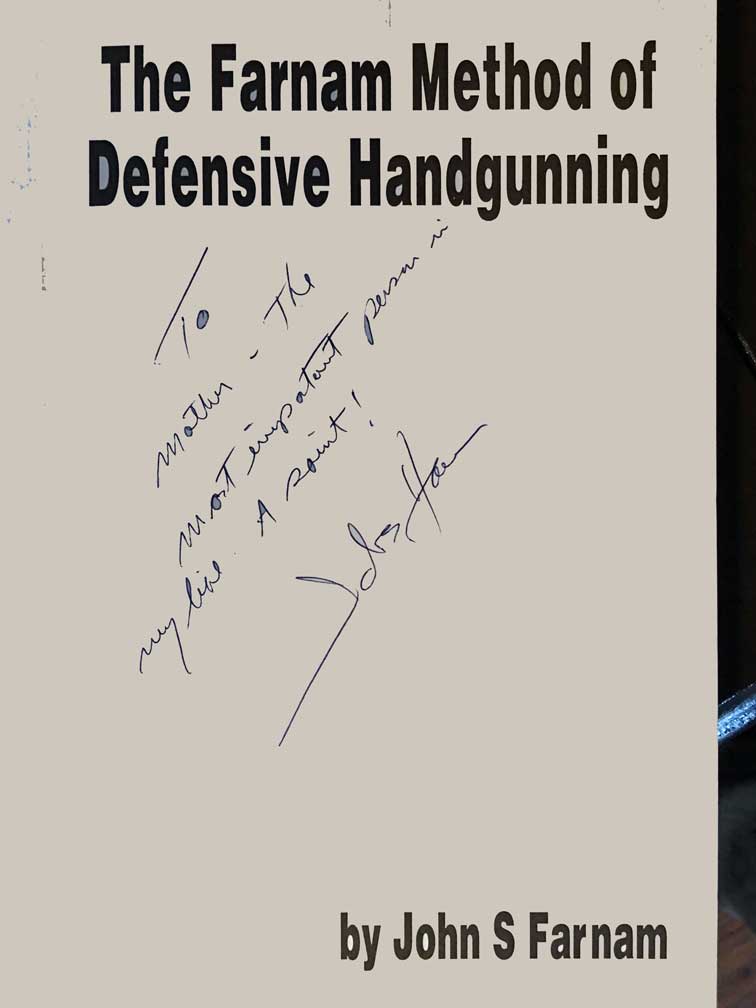 The Farnam Method of
Defensive Handgunning
To
Mother - The
most important person in
my life. A saint!
by John S Farnam